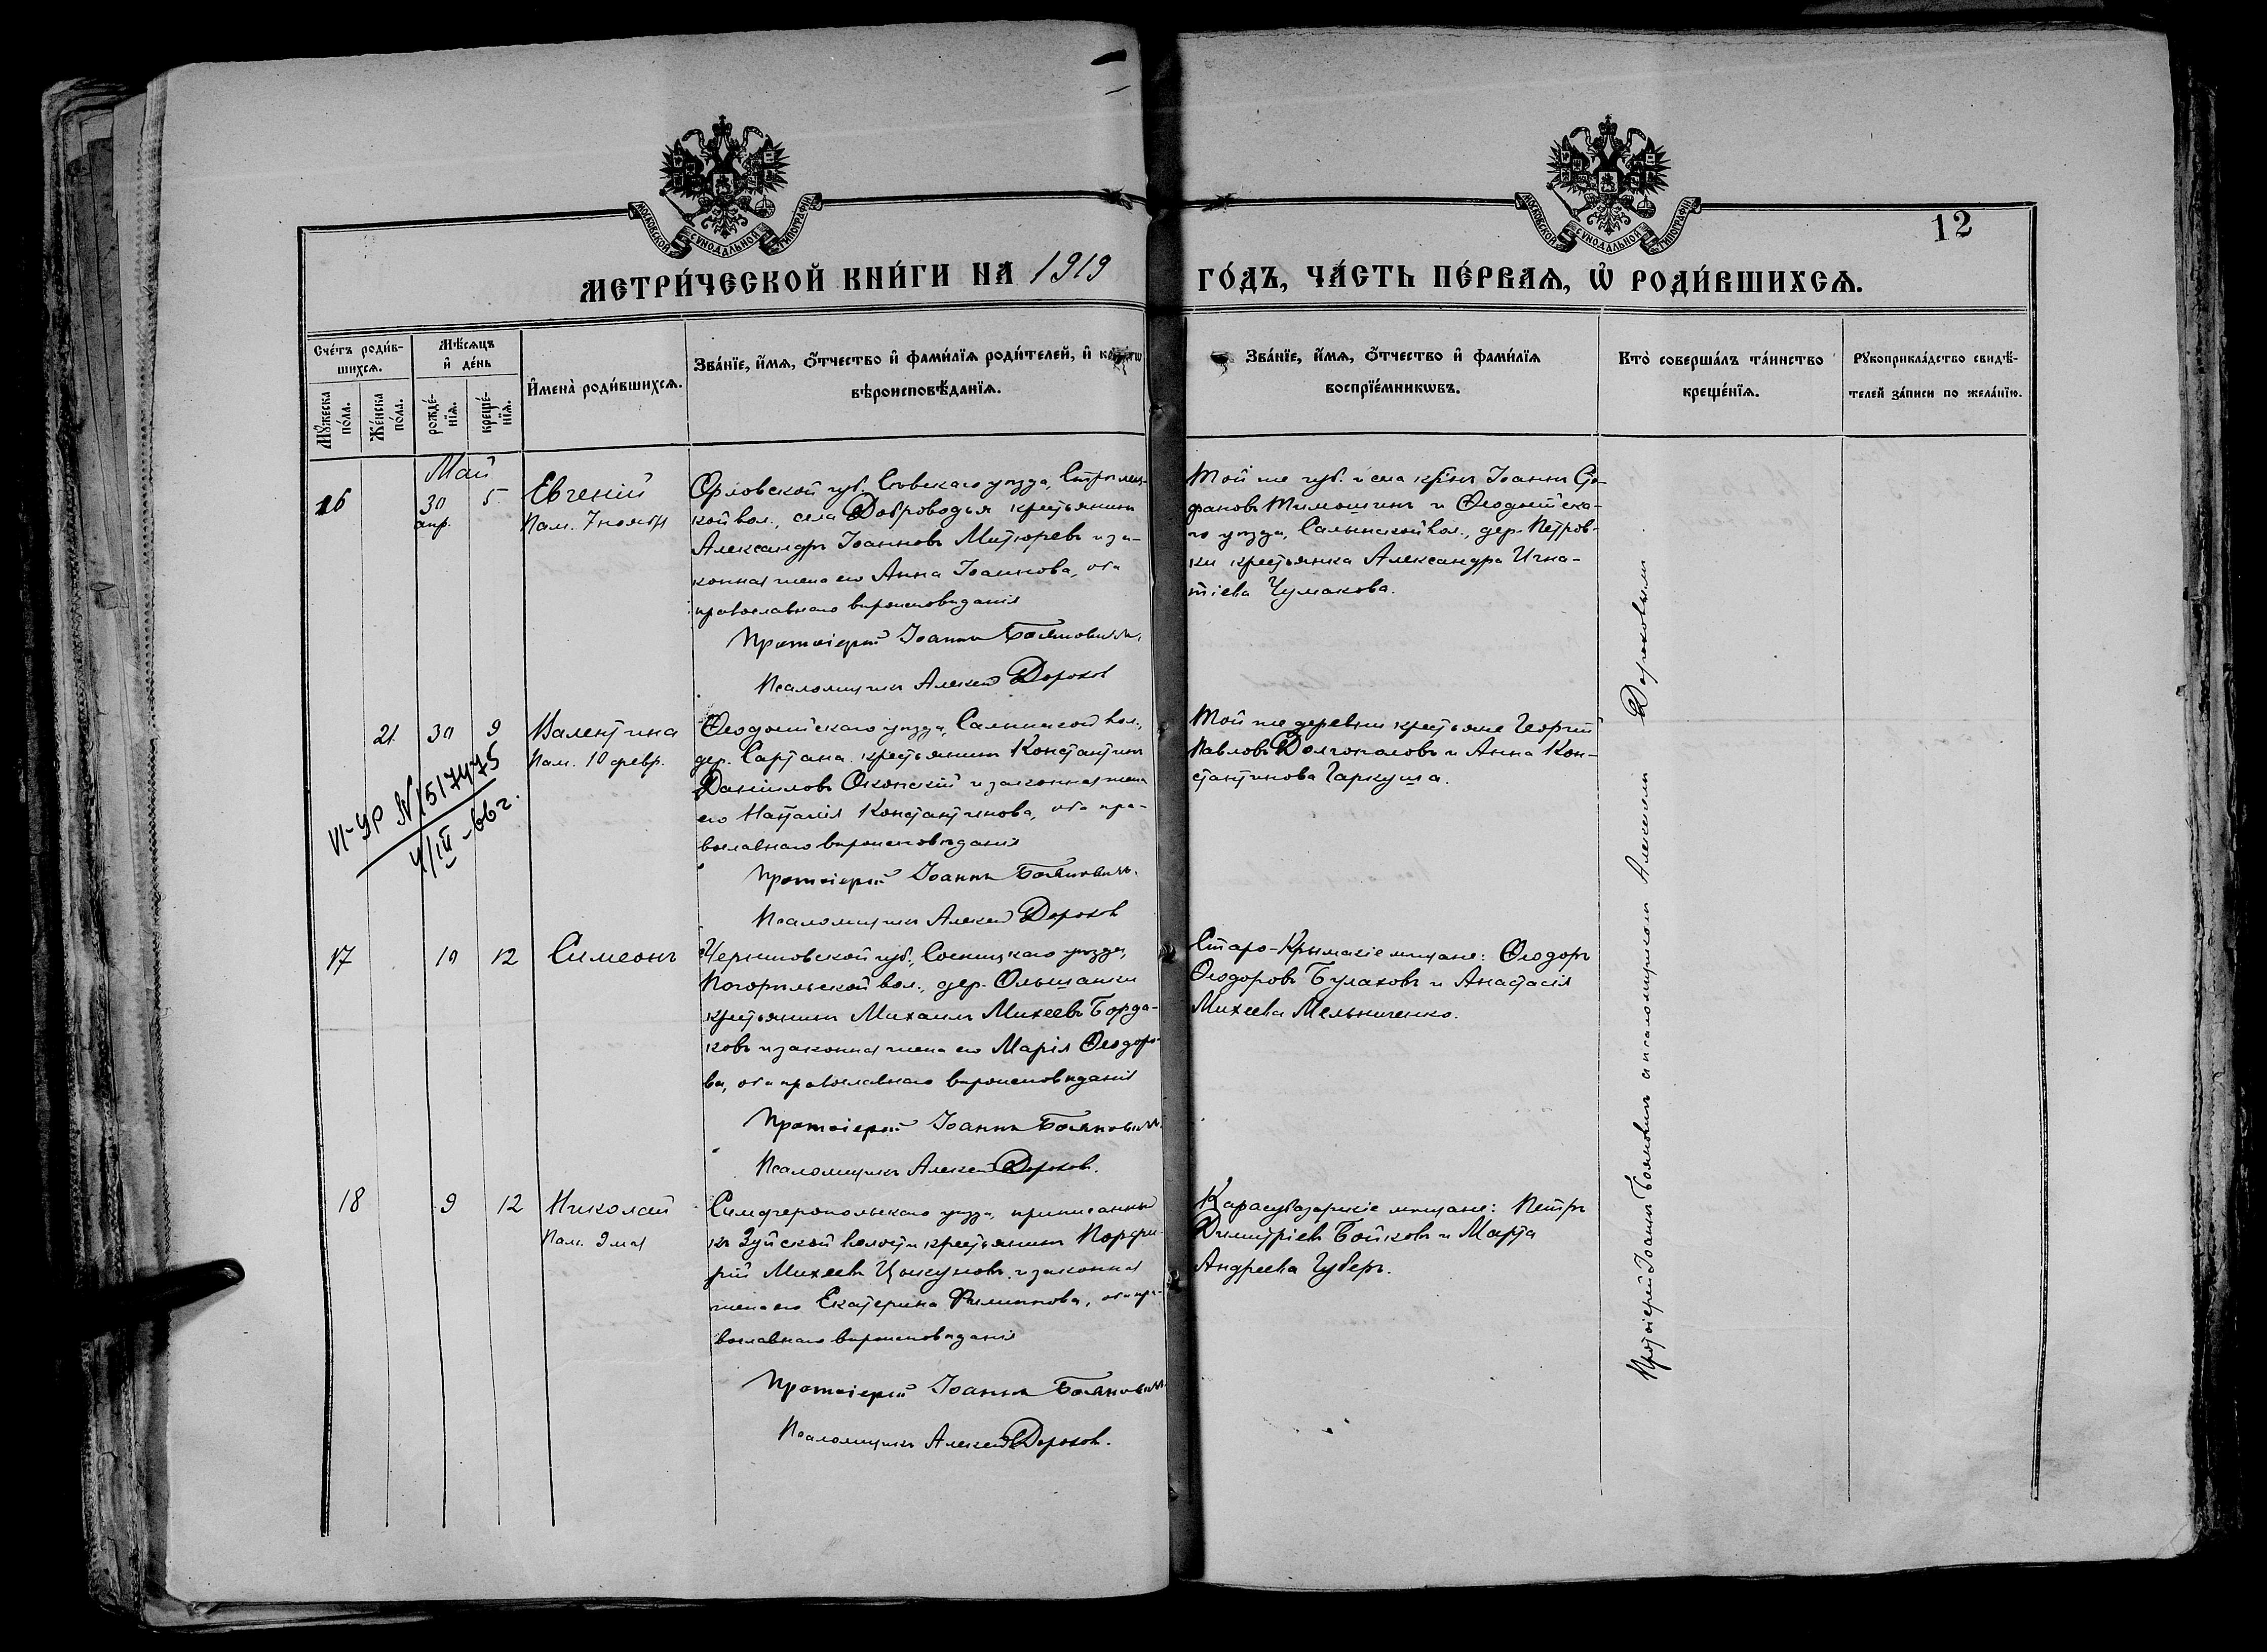 МОСКОВСКОЙ СУНОДАЛЬНОЙ ТИПОГРАФІИ
МОСКОВСКОЙ СУНОДАЛЬНОЙ ТИПОГРАФІИ
12
МЕТРИ́ЧЕСКОЙ КНИ́ГИ НА 1919 ГО́ДЪ, ЧА́СТЬ ПЕ́РВАЯ, Ѿ РОДИ́ВШИХСЯ.
Сче́тъ роди́в-
шихся.
Мѣ́сяцъ
и҆ де́нь
Мꙋ́жеска
по́ла.
Же́нска
по́ла.
рожде́-
нїя.
креще́-
нїя.
И҆мена̀ роди́вшихся.
Зва́нїе, и҆́мя, ѻ҆́тчество и҆ фами́лїя роди́телей, и҆
вѣроисповѣ́данїя.
Зва́нїе, и҆́мя, ѻ҆́тчество и҆ фами́лїя
воспрїе́мникѡвъ.
Кто̀ соверша́лъ та́инство
креще́нїя.
Рꙋкоприкла́дство свидѣ́-
телей за́писи по жела́нїю.
Май
16
30
апр.
5
Евгеній
Пам. 7 ноября
Орловской губ., Сѣвскаго уѣзда,
кой вол., села Доброводья крестьянинъ
Александръ Іоанновъ Митюревъ и за-
конная жена его Анна Іоаннова, оба
православнаго вѣроисповѣданія
Протоіерей Іоаннъ Бояновичъ.
Псаломщикъ Алексей Дорохов
Той же губ. и села Іоаннъ
Тимошинъ и Ѳеодосійска-
го уѣзда, Салынской вол., дер. Петров-
ки крестьянка Александра Игна-
тіева Чумакова.
21
30
9
Валентина
Пам. 10 февр.
Ѳеодосійскаго уѣзда, Салынской вол.,
дер. Сартана крестьянинъ Константинъ
Даніиловъ Оконскій и законная жена
его Наталія Константинова, оба пра-
вославнаго вѣроисповѣданія
Протоіерей Іоаннъ Бояновичъ.
Псаломщикъ Алексей Дорохов
Той же деревни крестьяне Георгій
Павловъ Долгополовъ и Анна Кон-
стантинова Гаркуша.
VI-УР № 517475
4/III-66 г.
17
10
12
Симеонъ
Черниговской губ., Сосницкаго уѣзда,
Погорѣльской вол., дер. Ольшанки
крестьянинъ Михаилъ Михеевъ Борда-
ковъ и законная жена его Марія Ѳеодоро-
ва, оба православнаго вѣроисповѣданія
Протоіерей Іоаннъ Бояновичъ.
Псаломщикъ Алексей Дорохов.
Старо-Крымскіе мѣщане: Ѳеодоръ
Ѳеодоровъ Булаховъ и Анастасія
Михеева Мельниченко.
18
9
12
Николай
Пам. 9 мая
Симферопольскаго уѣзда, приписанный
къ Зуйской волости крестьянинъ Порфи-
рій Михеевъ Цыкуновъ и законная
жена его Екатерина Филиппова, оба пра-
вославнаго вѣроисповѣданія
Протоіерей Іоаннъ Бояновичъ
Псаломщикъ Алексей Дорохов.
Карасубазарскіе мѣщане: Петръ
Димитріевъ Бойковъ и Марѳа
Андреева Губеръ.
Протоіерей Іоаннъ Бояновичъ с псаломщикомъ Алексеемъ Дороховымъ.